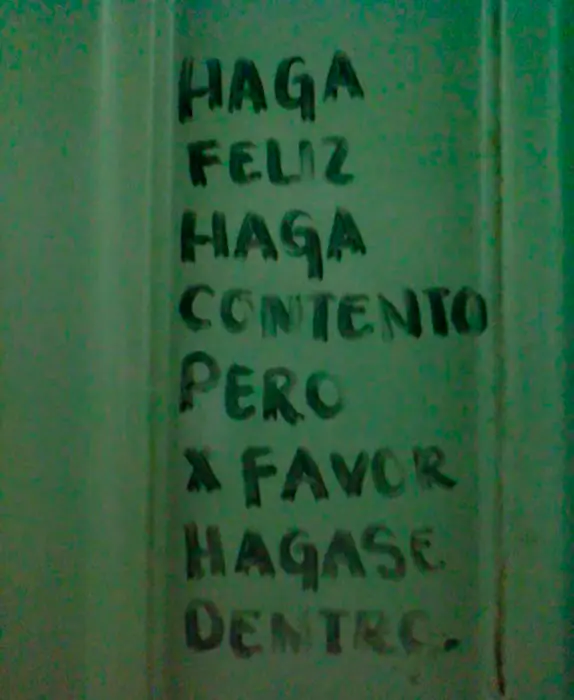 HAGA
FELIZ
HAGA
CONTENTO
PERO
X FAVOR
HAGASE
DENTRO.